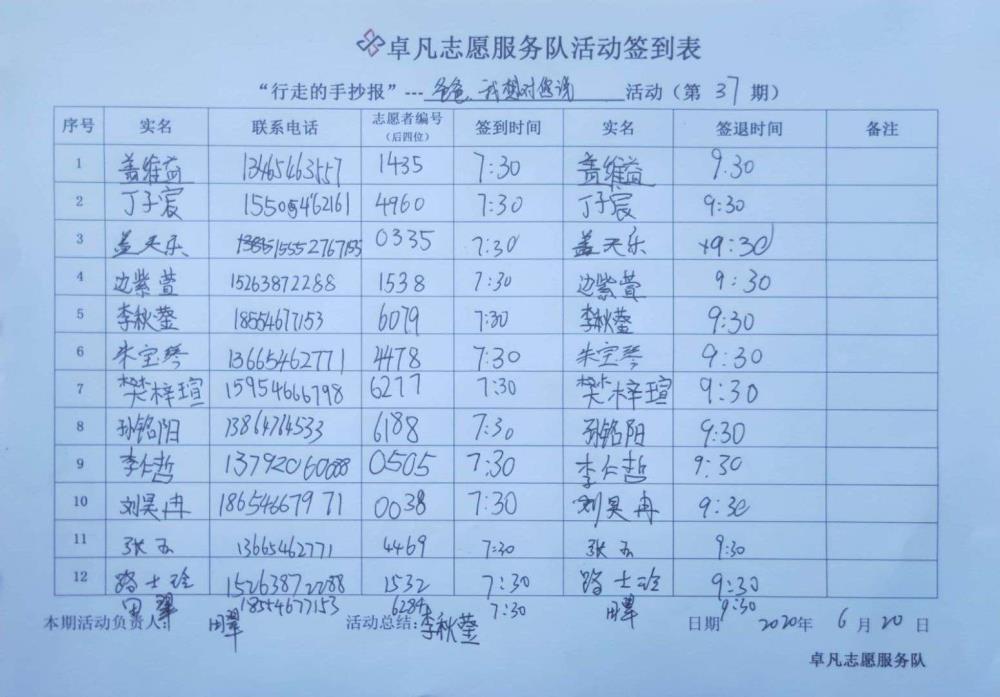 卓凡志愿服务队活动签到表
“行走的手抄报”---爸爸,我想对您说 活动(第 37 期)
序号 实名 联系电话 志愿者编号(后四位) 签到时间 实名 签退时间 备注
1 盖维益 13465463557 1435 7:30 盖维益 9:30
2 丁子宸 15505462161 4960 7:30 丁子宸 9:30
3 盖天乐 0335 7:30 盖天乐 9:30
4 边紫萱 15263872288 1538 7:30 边紫萱 9:30
5 李秋蓥 18554677153 6079 7:30 李秋蓥 9:30
6 朱宝琴 13665462771 4478 7:30 朱宝琴 9:30
7 樊梓瑄 15954666798 6277 7:30 樊梓瑄 9:30
8 孙铭阳 13864764533 6188 7:30 孙铭阳 9:30
9 李仁哲 13792060688 0505 7:30 李仁哲 9:30
10 刘昊冉 18654667971 0038 7:30 刘昊冉 9:30
11 张玉 13665462771 4469 7:30 张玉 9:30
12 路士玲 15263872288 1532 7:30 路士玲 9:30
田翠 18554677153 6284 7:30 田翠 9:30
本期活动负责人: 田翠 活动总结: 李秋蓥 日期 2020年 6 月 20 日
卓凡志愿服务队